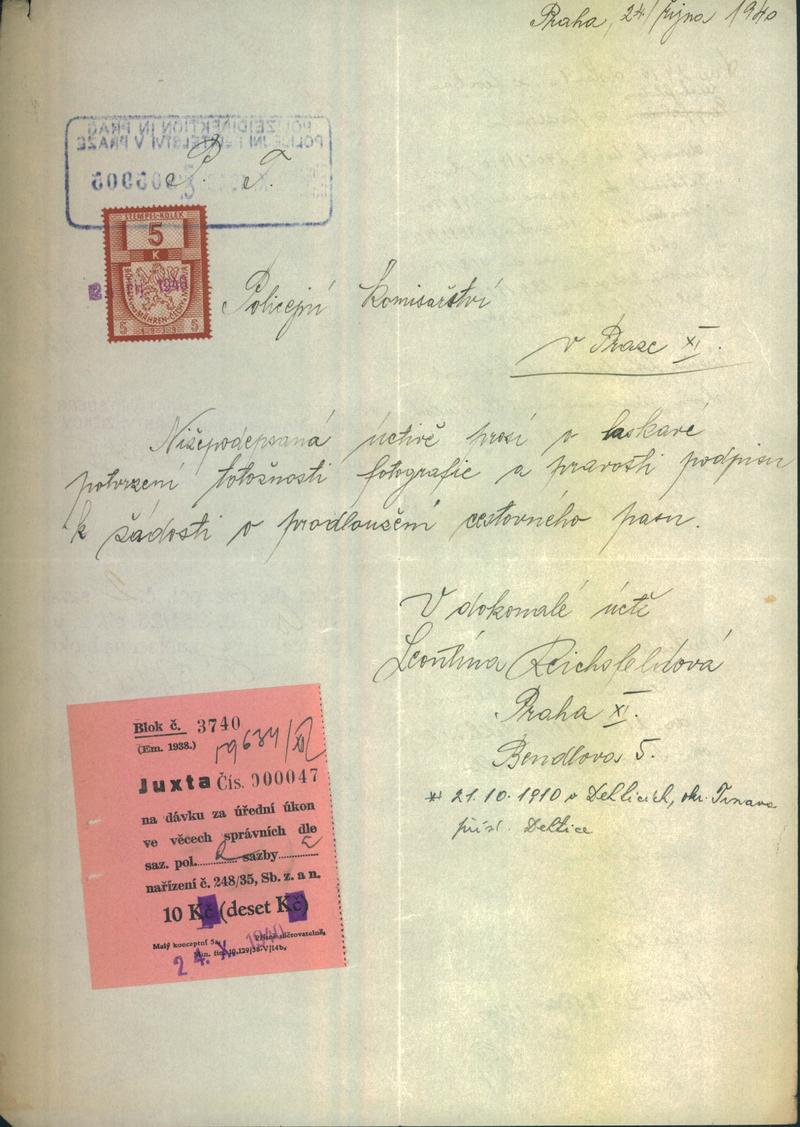 Praha, 24/října 1940
POLIZEIDIREKTION IN PRAG
POLICEJNÍ ŘEDITELSTVÍ V PRAZE
P. T.
STEMPEL-KOLEK
5
K
BÖHMEN UND MÄHREN-ČECHY A MORAVA
5 1939 5
1940
Policejní Komisařství
v Praze XI.
Nížepodepsaná uctivě prosí o laskavé
potvrzení totožnosti fotografie a pravosti podpisu
k žádosti o prodloužení cestovného pasu.
V dokonalé úctě
Leontina Reichsfeldová
Praha XI.
Bendlova 5.
* 21.10.1910 v Dehticích, okr. Trnava
přísl. Dehtice
Blok č. 3740
(Em. 1938.)
19634/XI
Juxta Čís. 000047
na dávku za úřední úkon
ve věcech správních dle
saz. pol. 2 sazby
nařízení č. 248/35, Sb. z. a n.
10 Kč (deset Kč)
Malý konceptní 5a. Přísně zúčtovatelné.
Min. fin. 10.129/38-V/14b.
24. X. 1940